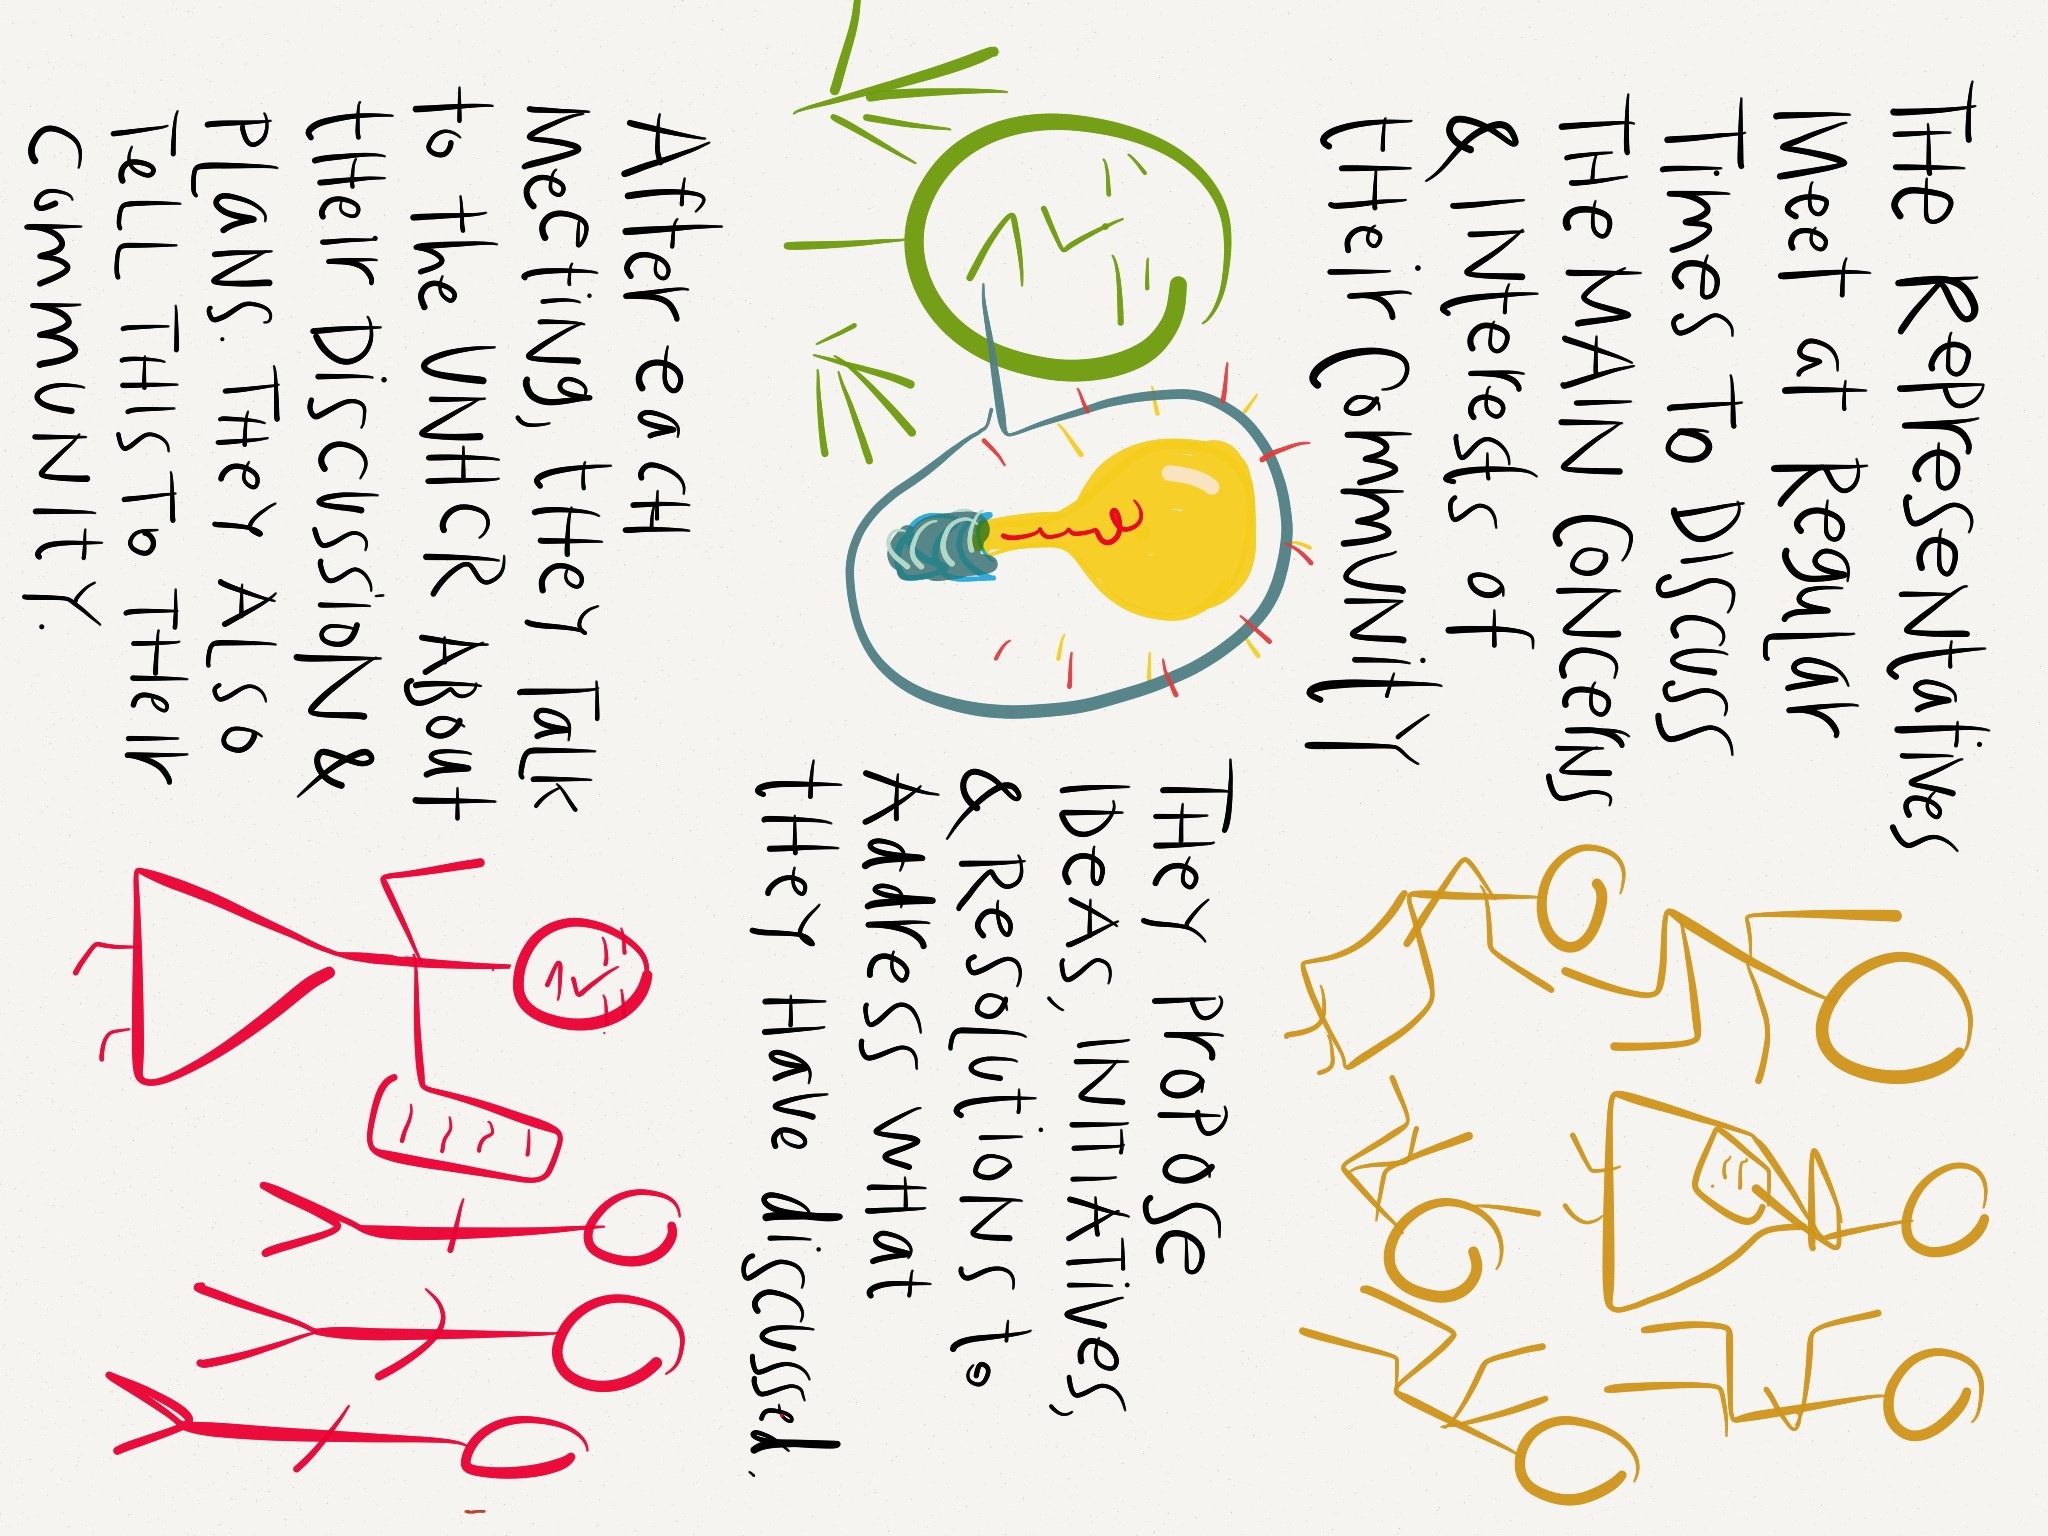 THe RePreseNtatives
Meet at RegUlar
Times To Discuss
THe MAIN CoNcerNs
& INterests of
tHeir CommUNitY
THeY ProPose
IDeAs, INITIATives,
& ResolutioNs to
Address wHat
tHeY Have discussed.
After eacH
MeetiNg, tHeY Talk
to the UNHCR ABout
tHeIr DiscussioN &
PLaNs. THeY ALso
TeLL THIS To THeIr
CommUNItY.